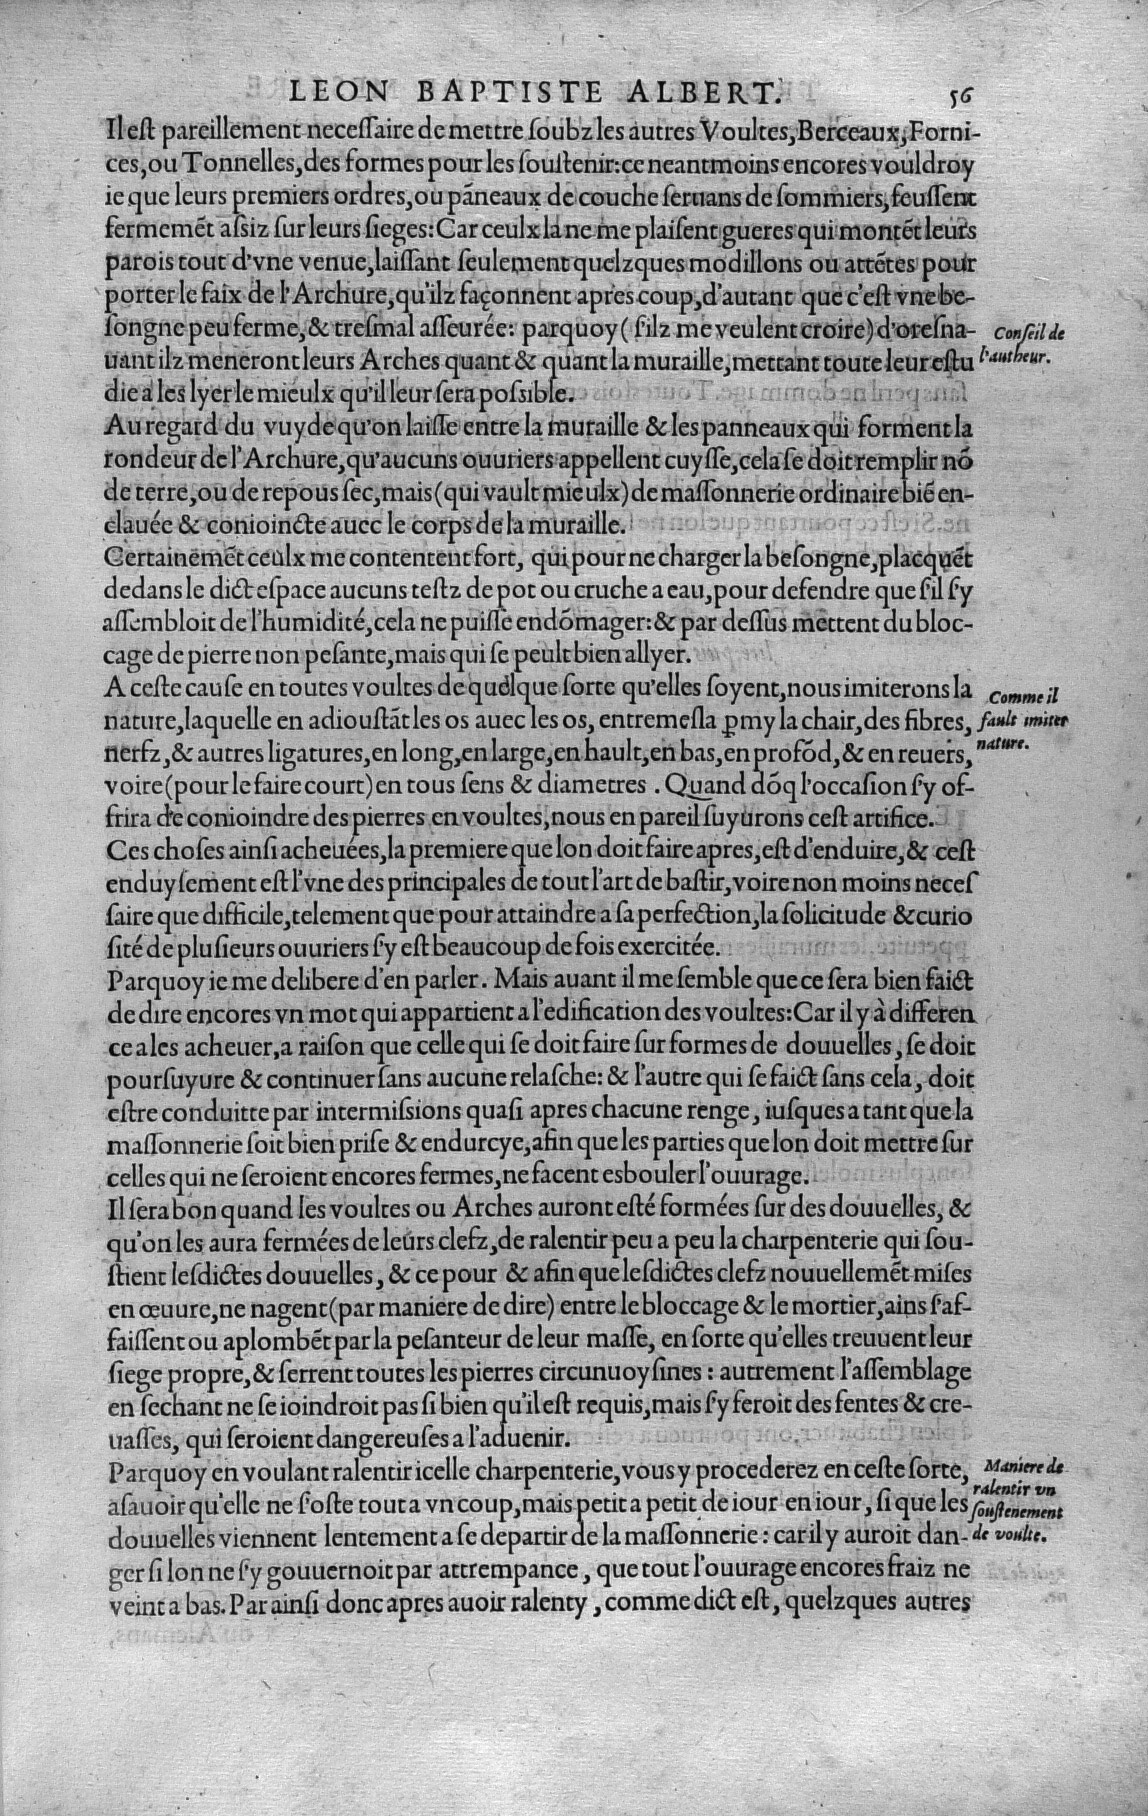 LEON BAPTISTE ALBERT. 56
Il est pareillement necessaire de mettre soubz les autres Voultes, Berceaux, Forni-
ces, ou Tonnelles, des formes pour les soustenir: ce neantmoins encores vouldroy
ie que leurs premiers ordres, ou pãneaux de couche seruans de sommiers, feussent
fermemẽt assiz sur leurs sieges: Car ceulx la ne me plaisent gueres qui montẽt leurs
parois tout d'vne venue, laissant seulement quelzques modillons ou attẽtes pour
porter le faix de l'Archure, qu'ilz façonnent apres coup, d'autant que c'est vne be-
songne peu ferme, & tresmal asseurée: parquoy (s'ilz me veulent croire) d'oresna-
uant ilz meneront leurs Arches quant & quant la muraille, mettant toute leur estu
die a les lyer le mieulx qu'il leur sera possible.
Conseil de
l'autheur.
Au regard du vuyde qu'on laisse entre la muraille & les panneaux qui forment la
rondeur de l'Archure, qu'aucuns ouuriers appellent cuysse, cela se doit remplir nõ
de terre, ou de repous sec, mais (qui vault mieulx) de massonnerie ordinaire biẽ en-
clauée & conioincte auec le corps de la muraille.
Certainemẽt ceulx me contentent fort, qui pour ne charger la besongne, placquẽt
dedans le dict espace aucuns testz de pot ou cruche a eau, pour defendre que s'il s'y
assembloit de l'humidité, cela ne puisse endõmager: & par dessus mettent du bloc-
cage de pierre non pesante, mais qui se peult bien allyer.
A ceste cause en toutes voultes de quelque sorte qu'elles soyent, nous imiterons la
nature, laquelle en adioustãt les os auec les os, entremesla ꝑmy la chair, des fibres,
nerfz, & autres ligatures, en long, en large, en hault, en bas, en profõd, & en reuers,
voire (pour le faire court) en tous sens & diametres. Quand dõq l'occasion s'y of-
frira de conioindre des pierres en voultes, nous en pareil suyurons cest artifice.
Comme il
fault imiter
nature.
Ces choses ainsi acheuées, la premiere que lon doit faire apres, est d'enduire, & cest
enduysement est l'vne des principales de tout l'art de bastir, voire non moins neces
saire que difficile, telement que pour attaindre a sa perfection, la solicitude & curio
sité de plusieurs ouuriers s'y est beaucoup de fois exercitée.
Parquoy ie me delibere d'en parler. Mais auant il me semble que ce sera bien faict
de dire encores vn mot qui appartient a l'edification des voultes: Car il y à differen
ce a les acheuer, a raison que celle qui se doit faire sur formes de douuelles, se doit
poursuyure & continuer sans aucune relasche: & l'autre qui se faict sans cela, doit
estre conduitte par intermissions quasi apres chacune renge, iusques a tant que la
massonnerie soit bien prise & endurcye, afin que les parties que lon doit mettre sur
celles qui ne seroient encores fermes, ne facent esbouler l'ouurage.
Il sera bon quand les voultes ou Arches auront esté formées sur des douuelles, &
qu'on les aura fermées de leurs clefz, de ralentir peu a peu la charpenterie qui sou-
stient lesdictes douuelles, & ce pour & afin que lesdictes clefz nouuellemẽt mises
en œuure, ne nagent (par maniere de dire) entre le bloccage & le mortier, ains s'af-
faissent ou aplombẽt par la pesanteur de leur masse, en sorte qu'elles treuuent leur
siege propre, & serrent toutes les pierres circunuoysines: autrement l'assemblage
en sechant ne se ioindroit pas si bien qu'il est requis, mais s'y feroit des fentes & cre-
uasses, qui seroient dangereuses a l'aduenir.
Parquoy en voulant ralentir icelle charpenterie, vous y procederez en ceste sorte,
asauoir qu'elle ne s'oste tout a vn coup, mais petit a petit de iour en iour, si que les
douuelles viennent lentement a se departir de la massonnerie: car il y auroit dan-
ger si lon ne s'y gouuernoit par attrempance, que tout l'ouurage encores fraiz ne
veint a bas. Par ainsi donc apres auoir ralenty, comme dict est, quelzques autres
Maniere de
ralentir vn
soustenement
de voulte.